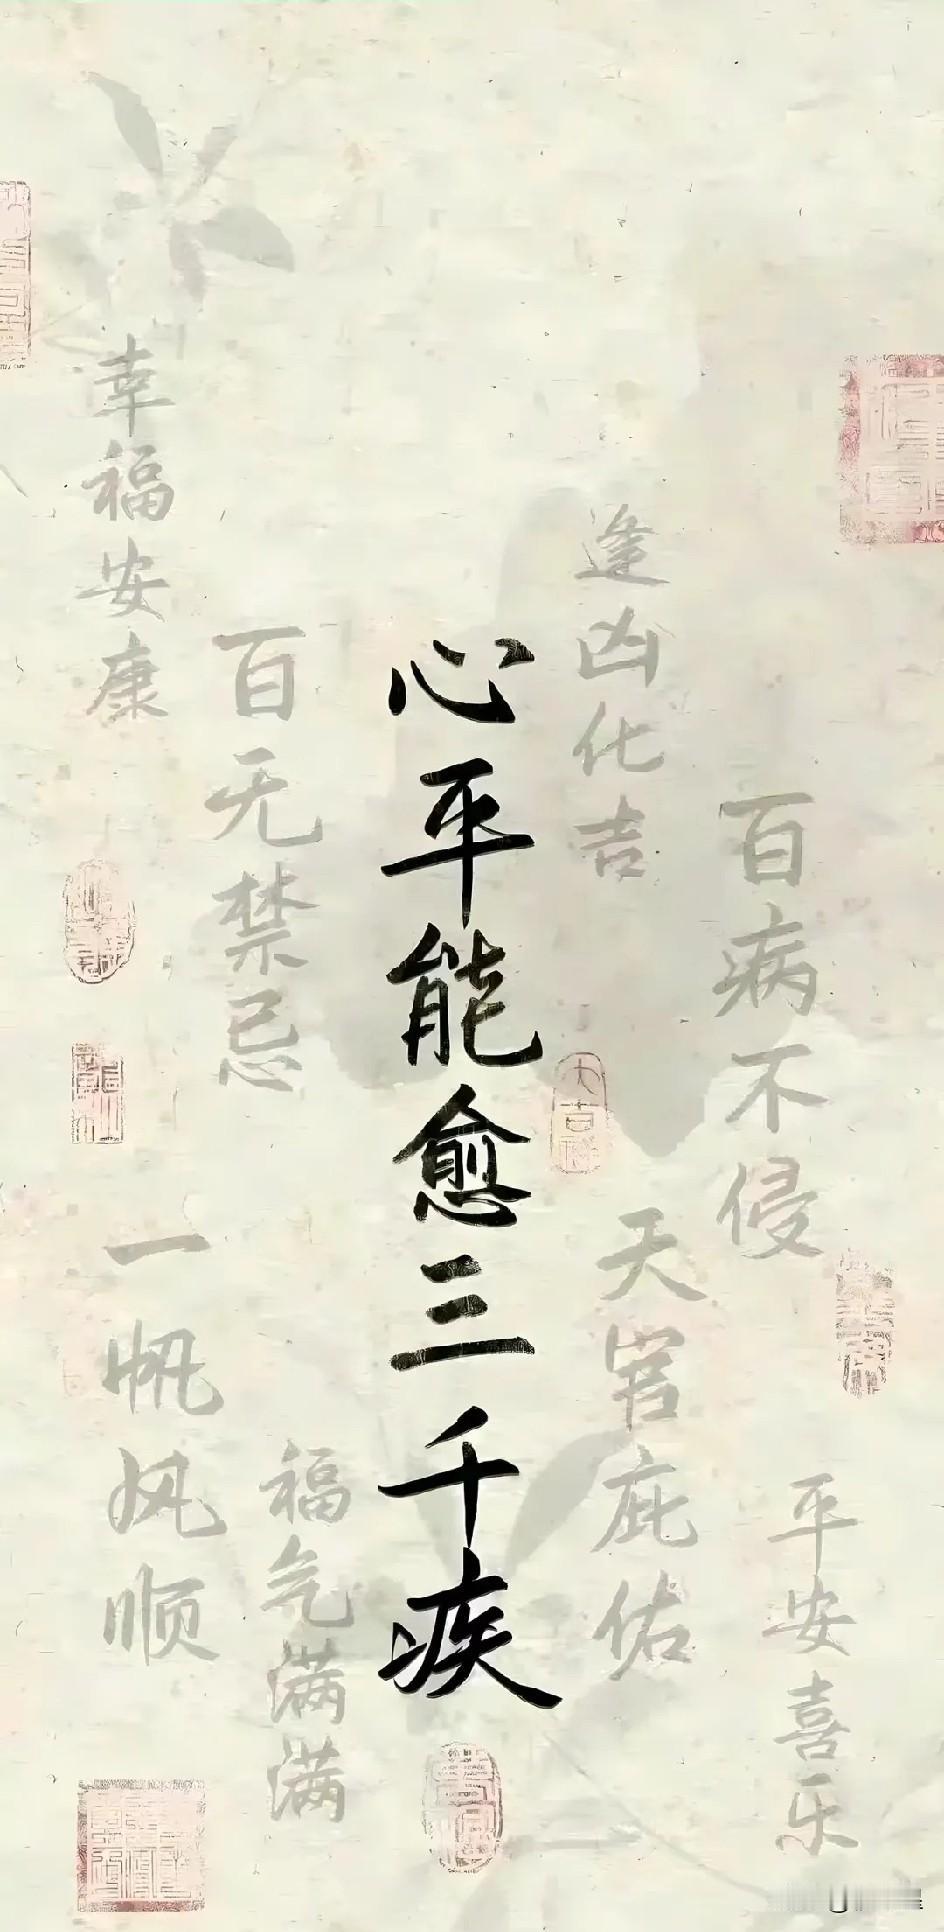 心平能愈三千疾
幸福安康
百无禁忌
逢凶化吉
百病不侵
大吉祥
一帆风顺
天官庇佑
福气满满
平安喜乐